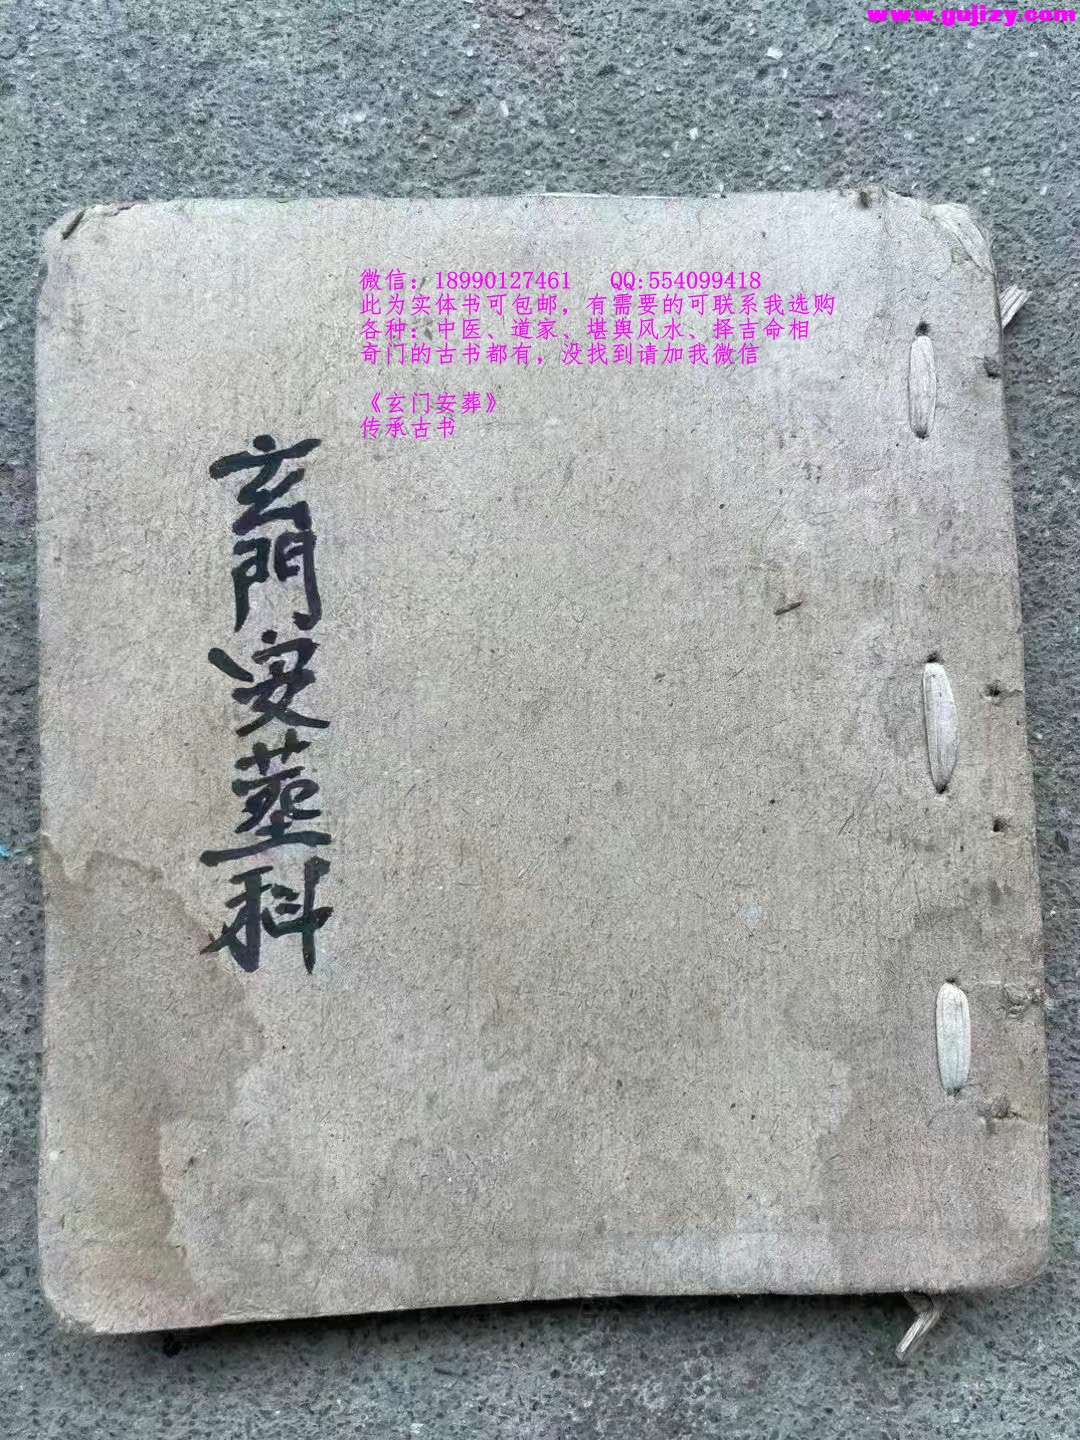 www.gujizy.com
微信：18990127461 QQ:554099418
此为实体书可包邮，有需要的可联系我选购
各种：中医、道家、堪舆风水、择吉命相
奇门的古书都有，没找到请加我微信
《玄门安葬》
传承古书
玄門安葬科